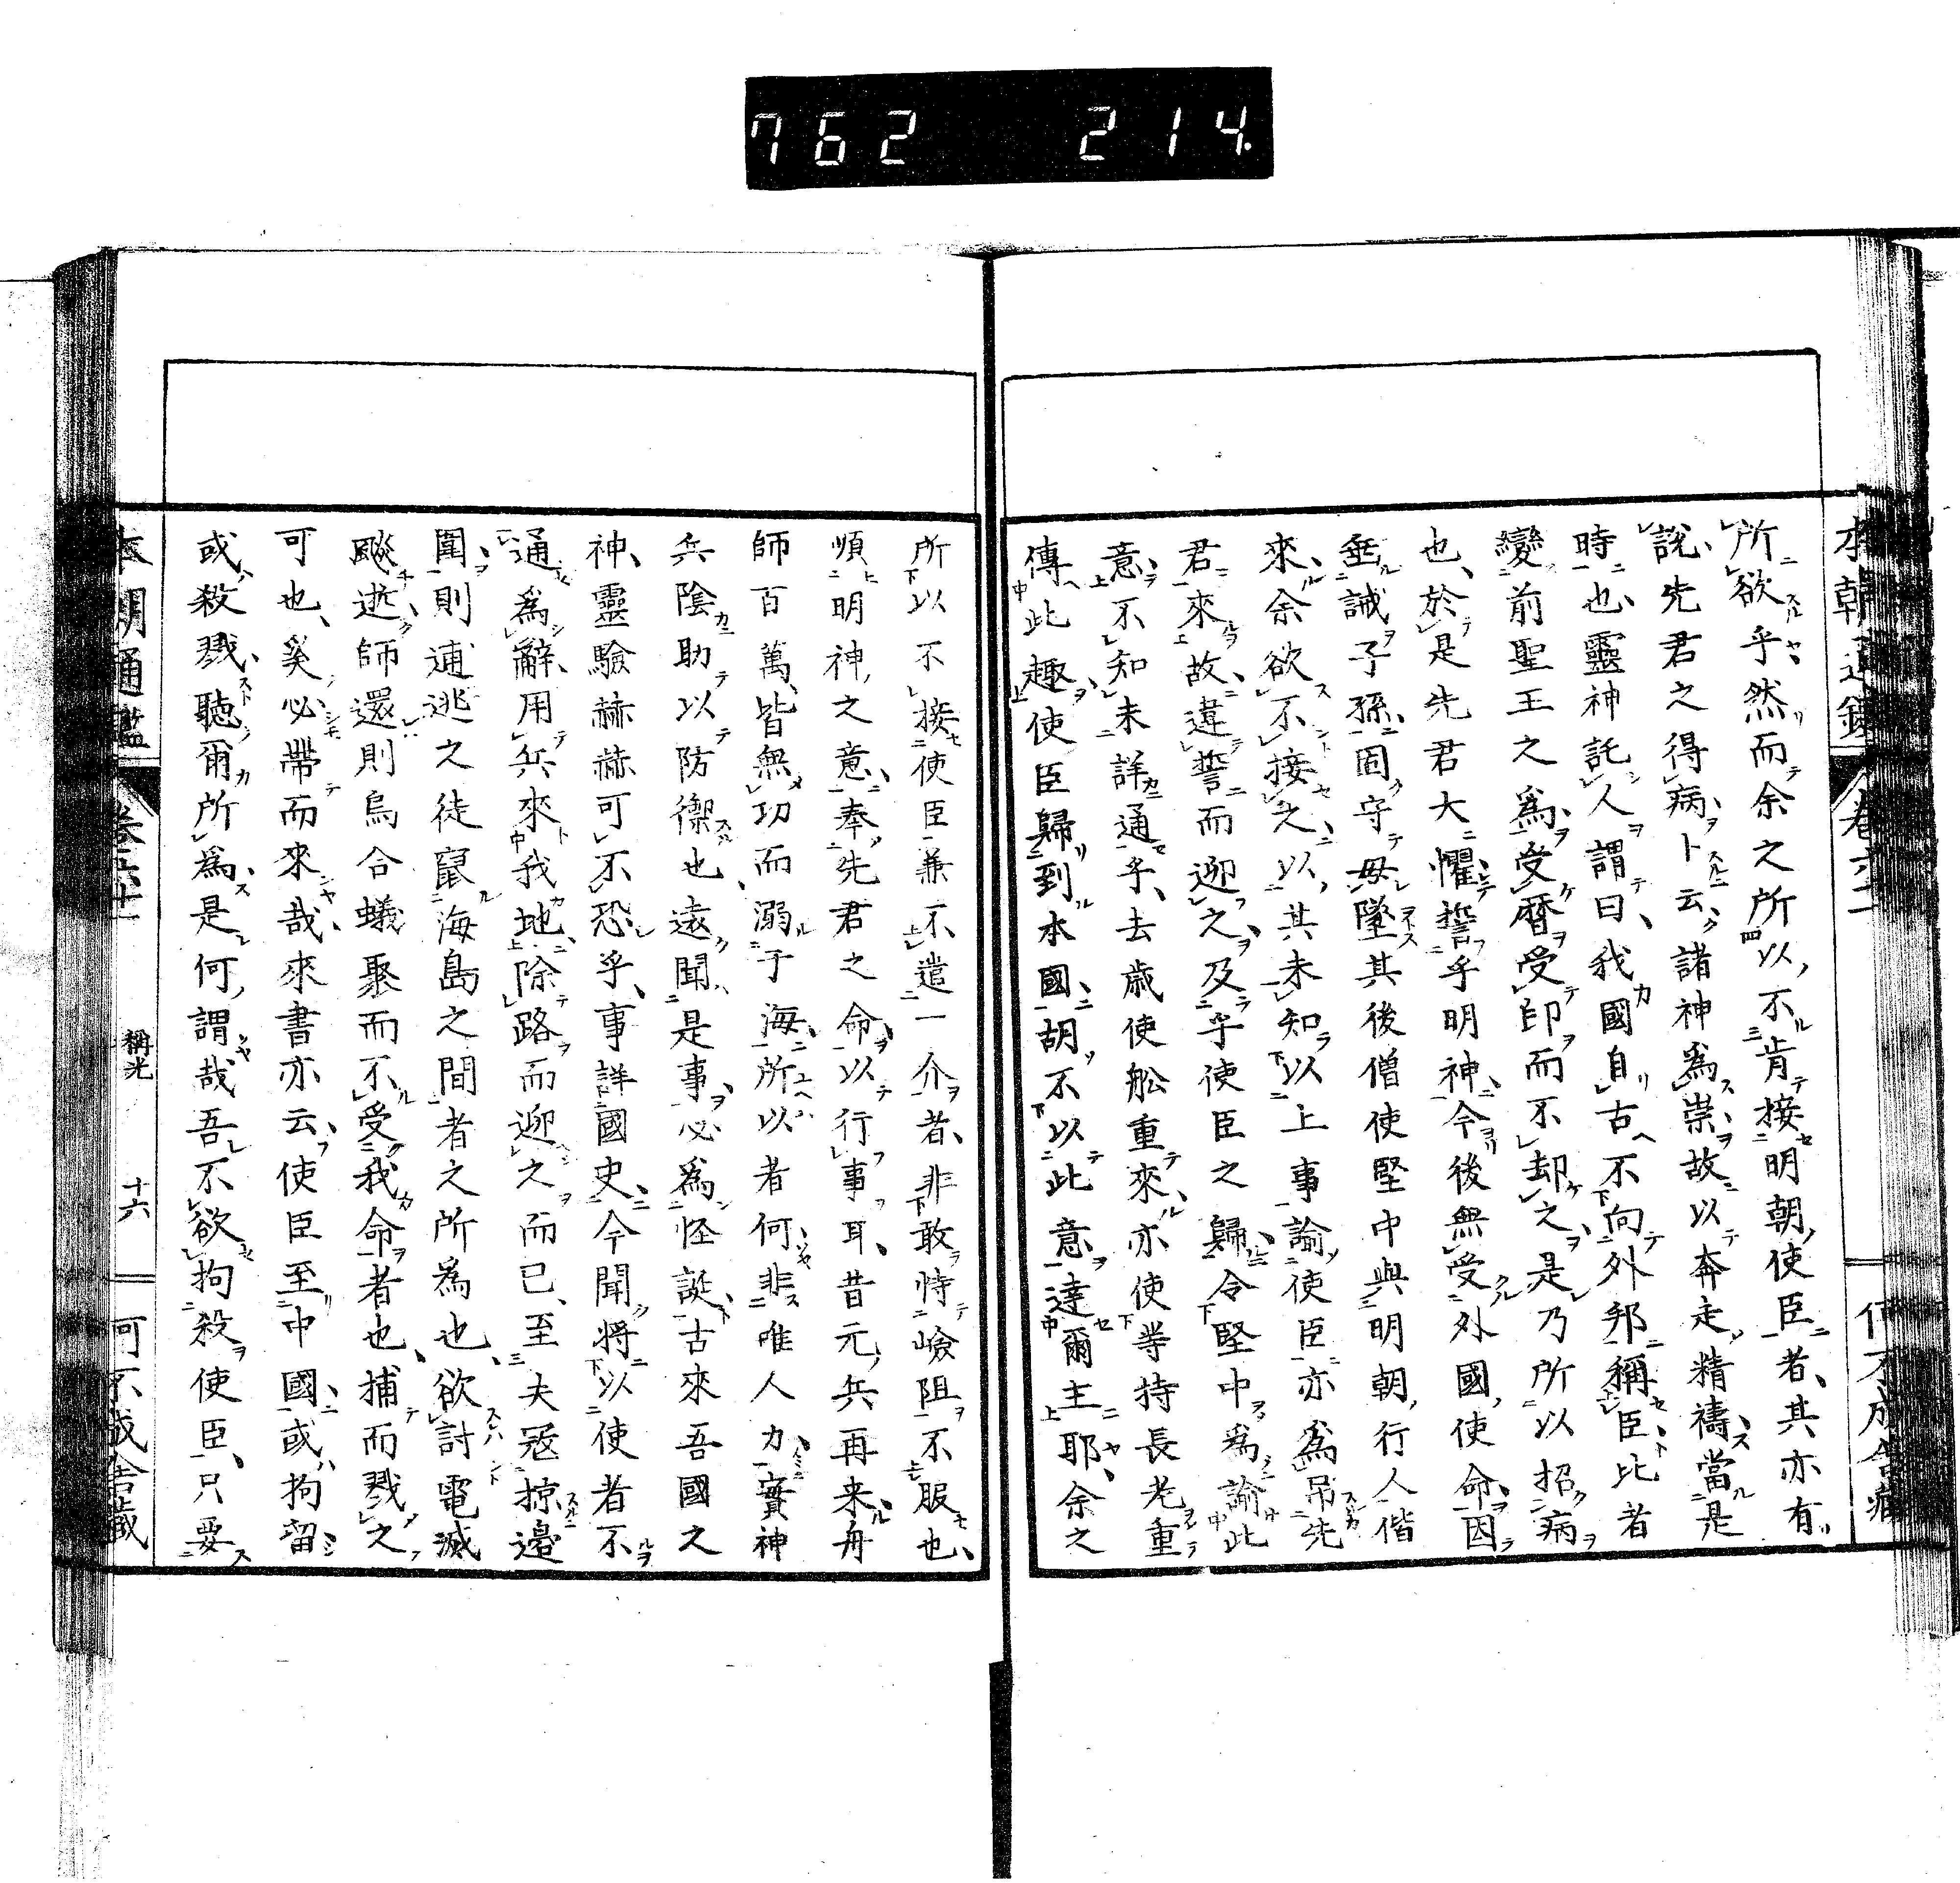 762 214.
所欲乎然而余之所以不肯接明朝使臣者其亦有
說先君之得病卜云諸神為崇故以奔走精禱當是
時也靈神託人謂曰我國自古不向外邦稱臣比者
變前聖王之為受曆受印而不却之是乃所以招病
也於是先君大懼誓乎明神今後無受外國使命因
垂誡子孫固守毋墜其後僧使堅中與明朝行人偕
來余欲不接之以其未知以上事諭使臣亦為吊先
君來故違誓而迎之及乎使臣之歸令堅中為諭此
意不知未詳通乎去歲使舩重來亦使等持長老重
傳此趣使臣歸到本國胡不以此意達爾主耶余之
所以不接使臣兼不遣一介者非敢恃嶮阻不服也
順明神之意奉先君之命以行事耳昔元兵再来舟
師百萬皆無功而溺于海所以者何非唯人力實神
兵陰助以防禦也遠聞是事必為怪誕古來吾國之
神靈驗赫赫可不恐乎事詳國史今聞將以使者不
通為辭用兵來我地除路而迎之而已至夫寇掠邊
圍則逋逃之徒竄海島之間者之所為也欲討電滅
颷逝師還則烏合蟻聚而不受我命者也捕而戮之
可也奚必帶而來哉來書亦云使臣至中國或拘留
或殺戮聽爾所為是何謂哉吾不欲拘殺使臣只要
本朝通鑑 卷六十一 稱光 十六